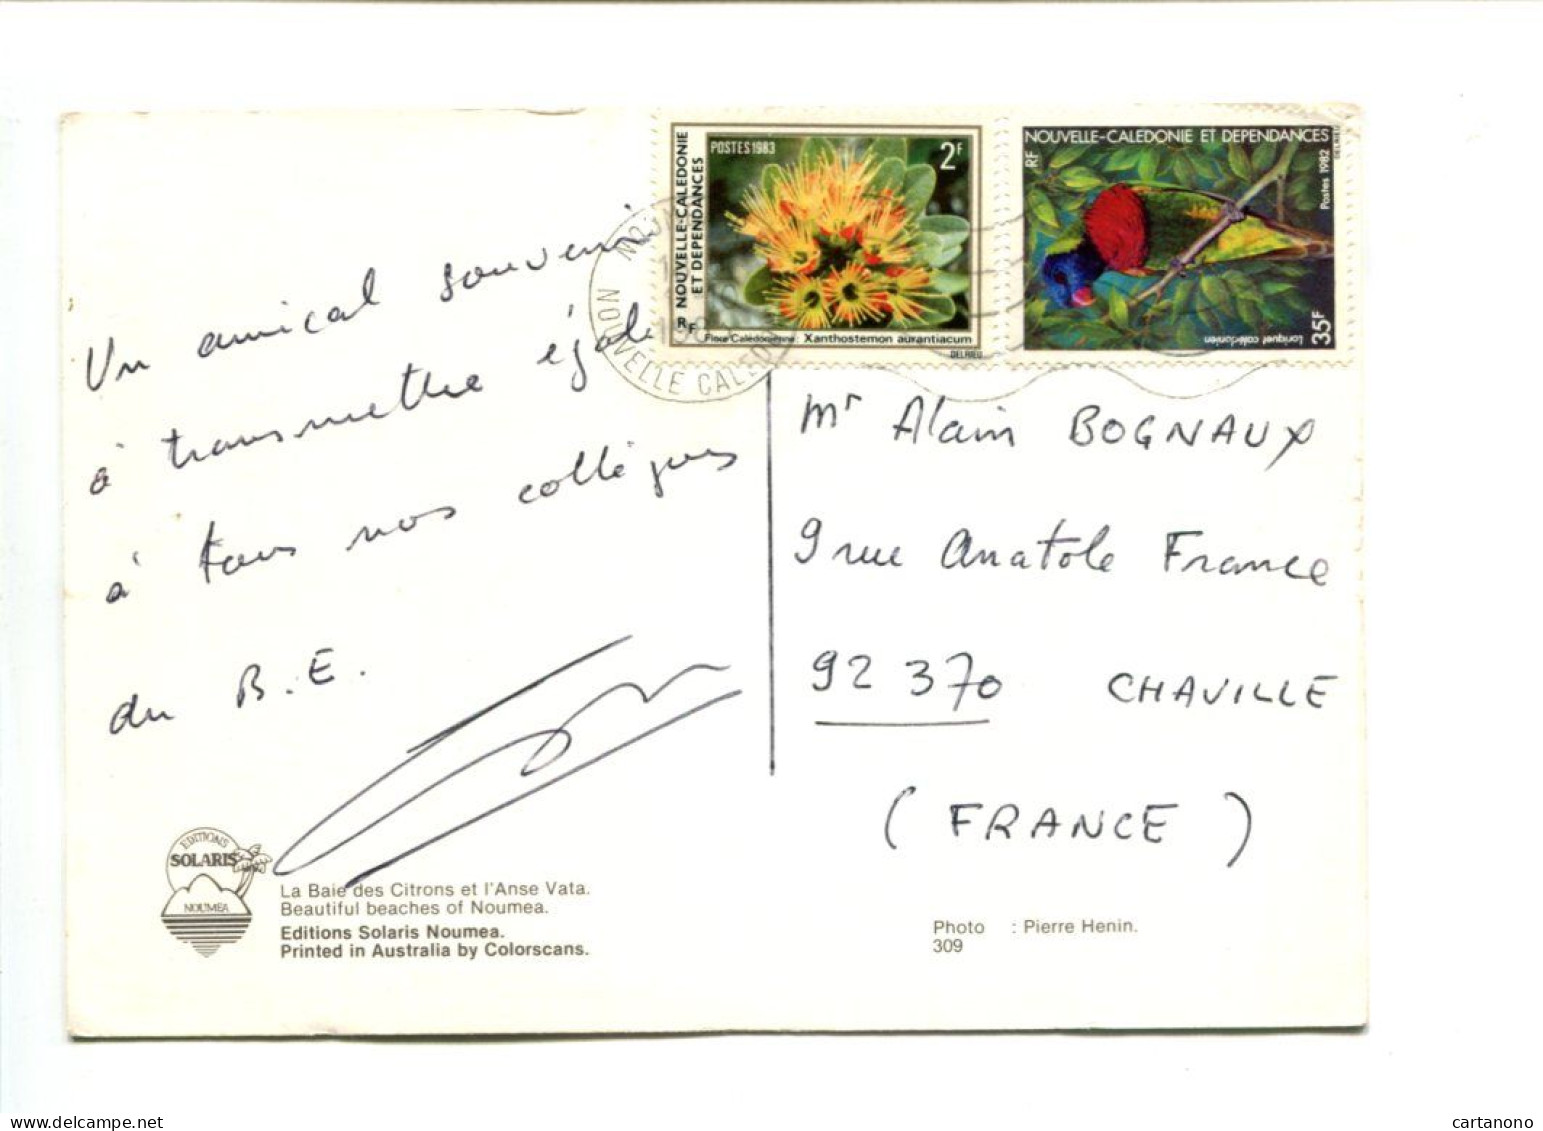 POSTES 1983
2F
NOUVELLE-CALEDONIE
ET DEPENDANCES
RF
Flore Calédonienne : Xanthostemon aurantiacum
DELRIEU
NOUVELLE-CALEDONIE ET DEPENDANCES
RF
Postes 1982
DELRIEU
35F
Loriquet calédonien
NOUVELLE CALEDON
Un amical souvenir
à transmettre égale
à tous nos collègues
du B.E.
Mr Alain BOGNAUX
9 rue Anatole France
92 370 CHAVILLE
( FRANCE )
EDITIONS
SOLARIS
NOUMEA
La Baie des Citrons et l'Anse Vata.
Beautiful beaches of Noumea.
Editions Solaris Noumea.
Printed in Australia by Colorscans.
Photo : Pierre Henin.
309
www.delcampe.net
cartanono